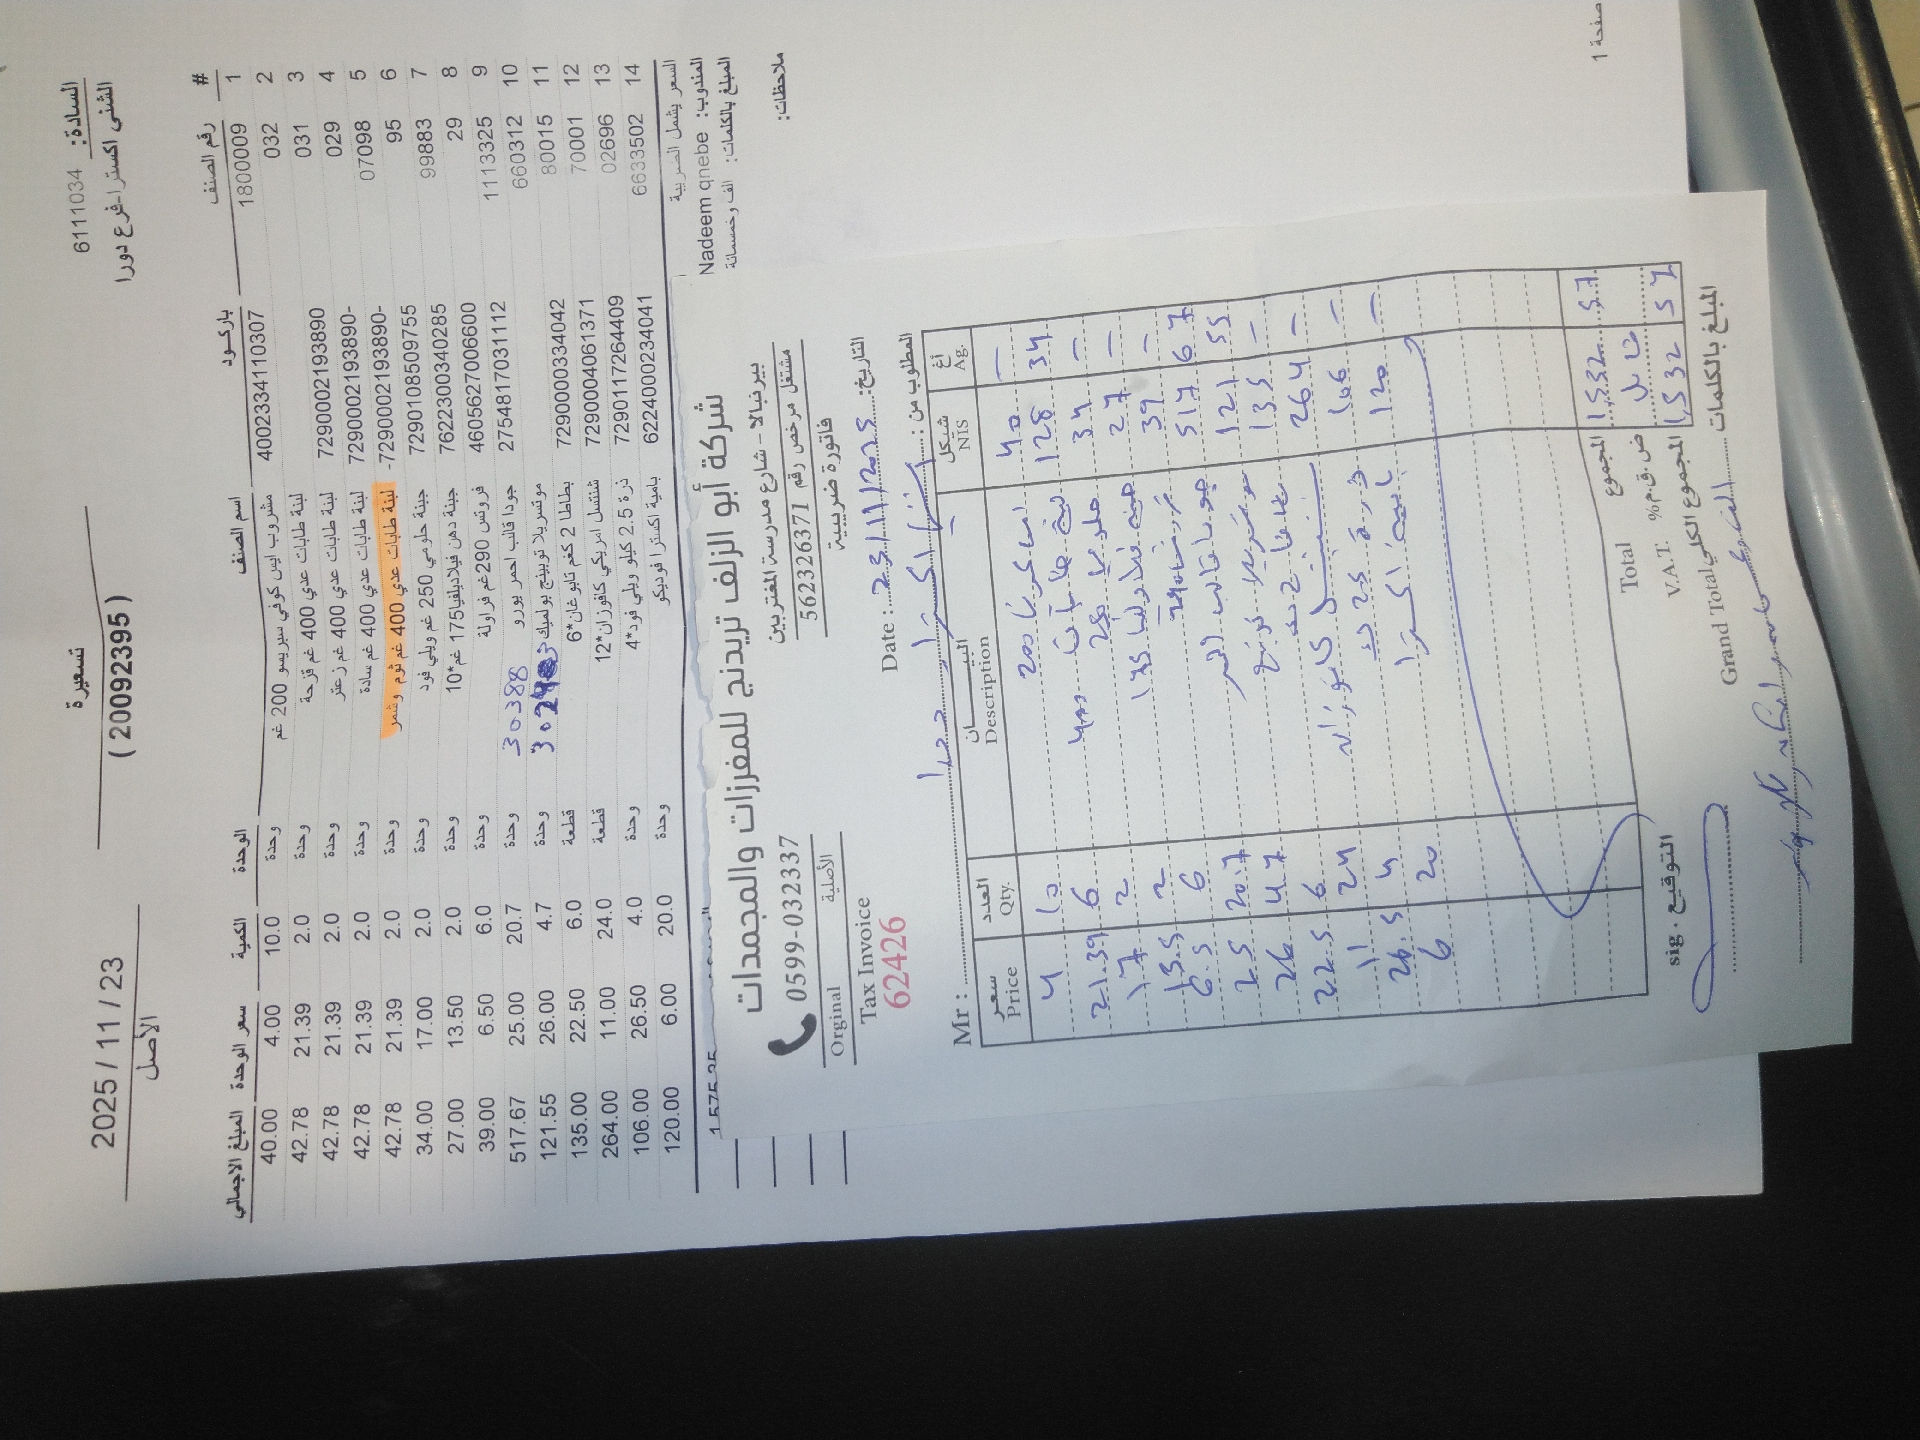 السادة: 6111034
الشني اكسترا-فرع دورا
تسعيرة
( 20092395 )
2025 / 11 / 23
الأصل
# رقم الصنف باركود اسم الصنف الوحدة الكمية سعر الوحدة المبلغ الاجمالي
1 1800009 4002334110307 مشروب ايس كوفي سبريسو 200 غم وحدة 10.0 4.00 40.00
2 032 لبنة طابات عدي 400 غم قزحة وحدة 2.0 21.39 42.78
3 031 7290002193890 لبنة طابات عدي 400 غم زعتر وحدة 2.0 21.39 42.78
4 029 7290002193890- لبنة طابات عدي 400 غم سادة وحدة 2.0 21.39 42.78
5 07098 7290002193890-- لبنة طابات عدي 400 غم ثوم وشمر وحدة 2.0 21.39 42.78
6 95 7290108509755 جبنة حلومي 250 غم ويلي فود وحدة 2.0 17.00 34.00
7 99883 7622300340285 جبنة دهن فيلاديلفيا175 غم*10 وحدة 2.0 13.50 27.00
8 29 4605627006600 فروتس 290غم فراولة وحدة 6.0 6.50 39.00
9 1113325 2754817031112 جودا قالب احمر يورو وحدة 20.7 25.00 517.67
30388
10 660312 موتسريلا توبينج بولميك وحدة 4.7 26.00 121.55
11 80015 7290000334042 بطاطا 2 كغم تابوغان*6 قطعة 6.0 22.50 135.00
12 70001 7290004061371 شنتسل امريكي كافوزان*12 قطعة 24.0 11.00 264.00
13 02696 7290117264409 ذرة 2.5 كيلو ويلي فود*4 وحدة 4.0 26.50 106.00
14 6633502 6224000234041 بامية اكسترا فوديكو وحدة 20.0 6.00 120.00
السعر يشمل الضريبة
المندوب: Nadeem qnebe
المبلغ بالكلمات: الف وخمسمائة
ملاحظات:
صفحة 1
شركة أبو الزلف تريدنج للمفرزات والمجمدات
بيرنبالا - شارع مدرسة المغتربين
0599-032337
مشتغل مرخص رقم 562326371
Orginal الأصلية
فاتورة ضريبية
Tax Invoice
62426
Date : 23/11/2025 التاريخ:
Mr : المطلوب من :
سعر Price العدد Qty. البيــــــان Description شيكل NIS أغ Ag.
4 10 200 40 —
21.39 6 400 لبنة طابات 128 34
17 2 حلومي 34 —
13.5 2 27 —
6.5 6 39 —
25 20.7 517 67
26 4.7 121 55
22.5 6 135 —
11 24 264 —
26.5 4 106 —
6 20 بامية اكسترا 120 —
Total المجموع 1532 57
V.A.T. ض.ق.م%
Grand Total المجموع الكلي 1532 57
المبلغ بالكلمات
sig . التوقيع